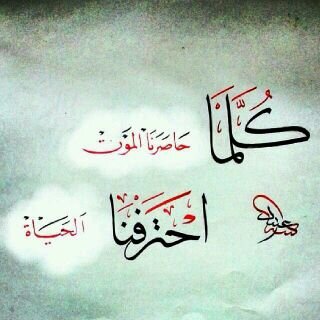 كُلَّمَا حَاصَرَنَا المَوْتُ
احْتَرَفْنَا الحَيَاةَ